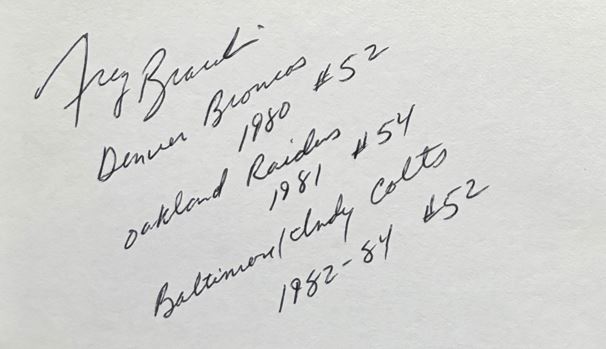 Greg Bracelin
Denver Broncos
1980 #52
Oakland Raiders
1981 #54
Baltimore/Indy Colts
1982-84 #52